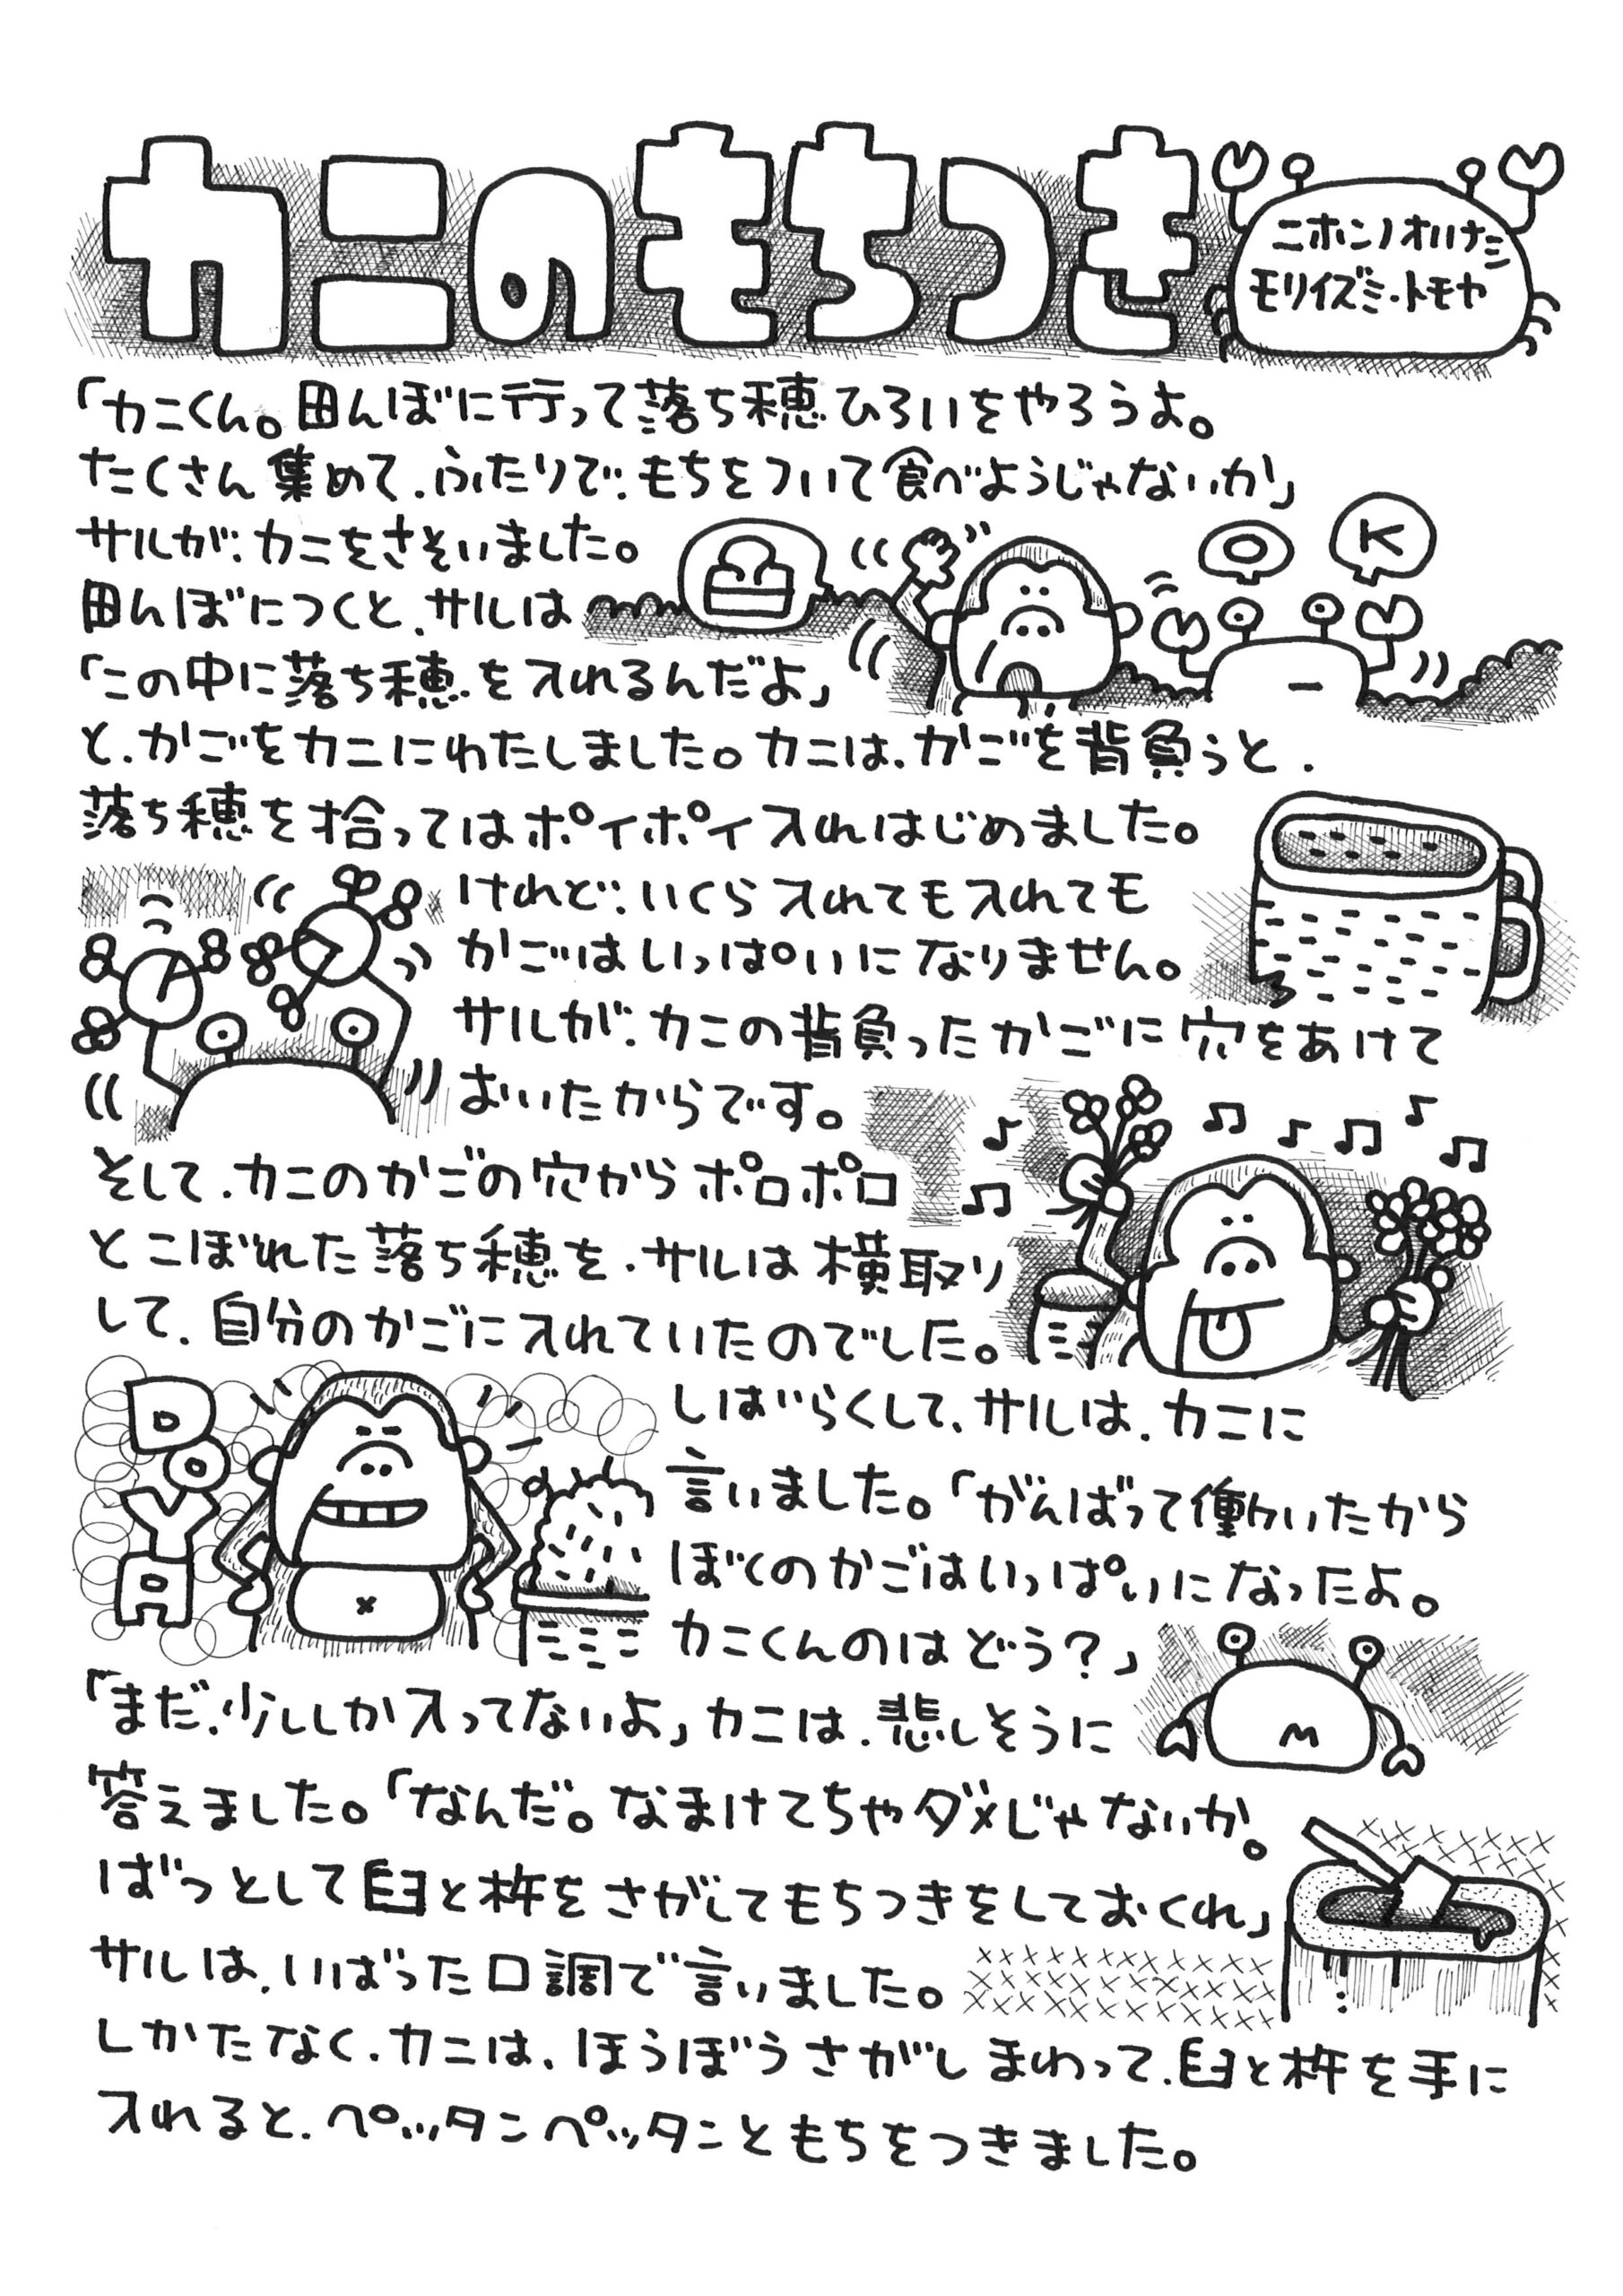 カニのもちつき
ニホンノオハナシ
モリイズミ・トモヤ
「カニくん。田んぼに行って落ち穂ひろいをやろうよ。
たくさん集めて、ふたりで、もちをついて食べようじゃないか」
サルが、カニをさそいました。
O K
田んぼにつくと、サルは
「この中に落ち穂を入れるんだよ」
と、かごをカニにわたしました。カニは、かごを背負うと、
落ち穂を拾ってはポイポイ入れはじめました。
けれど、いくら入れても入れても
かごはいっぱいになりません。
サルが、カニの背負ったかごに穴をあけて
おいたからです。
そして、カニのかごの穴からポロポロ
とこぼれた落ち穂を、サルは横取り
して、自分のかごに入れていたのでした。
DOYA
しばらくして、サルは、カニに
言いました。「がんばって働いたから
ぼくのかごはいっぱいになったよ。
カニくんのはどう？」
「まだ、少ししか入ってないよ」カニは、悲しそうに
答えました。「なんだ。なまけてちゃダメじゃないか。
ばつとして臼と杵をさがしてもちつきをしておくれ」
サルは、いばった口調で言いました。
しかたなく、カニは、ほうぼうさがしまわって、臼と杵を手に
入れると、ペッタンペッタンともちをつきました。